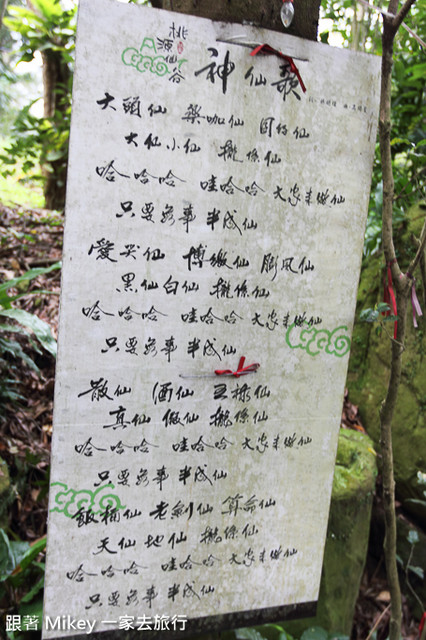 桃源仙谷
神仙歌
大頭仙 樂咖仙 囝仔仙
大仙小仙 攏係仙
哈哈哈 哇哈哈 大家來做仙
只要無事 半成仙
愛哭仙 博繳仙 膨風仙
黑仙白仙 攏係仙
哈哈哈 哇哈哈 大家來做仙
只要無事 半成仙
散仙 酒仙 豆撥仙
真仙 假仙 攏係仙
哈哈哈 哇哈哈 大家來做仙
只要無事 半成仙
飯桶仙 老剝仙 算命仙
天仙地仙 攏係仙
哈哈哈 哇哈哈 大家來做仙
只要無事 半成仙
跟著 Mikey 一家去旅行